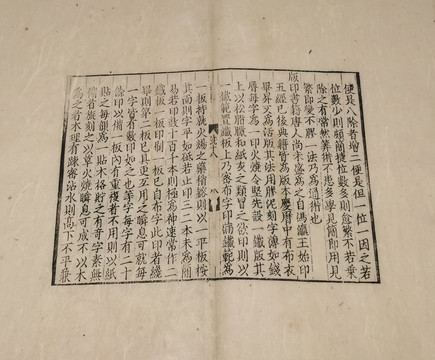 便是八除者增二便是但一位一因之若
位數少則頗簡捷位數多則愈繁不若乗
除之有常然筭術不患多學見簡即用見
繁即變不膠一法乃為通術也
版印書籍唐人尚未盛為之自馮瀛王始印
五經已後典籍皆為版本慶曆中有布衣
畢昇又為活版其法用膠泥刻字薄如錢
唇每字為一印火燒令堅先設一鐵版其
上以松脂臘和紙灰之類冒之欲印則以
一鐵範置鐵板上乃密布字印滿鐵範為
十八
一板持就火煬之藥稍鎔則以一平板按
其面則字平如砥若止印三二本未為簡
易若印數十百千本則極為神速常作二
鐵板一板印刷一板已自布字此印者纔
畢則第二板已具更互用之瞬息可就每
一字皆有數印如之也等字每字有二十
餘印以備一板內有重複者不用則以紙
貼之每韻為一貼木格貯之有奇字素無
備者旋刻之以草火燒瞬息可成不以木
為之者木理有疎密沾水則高下不平兼